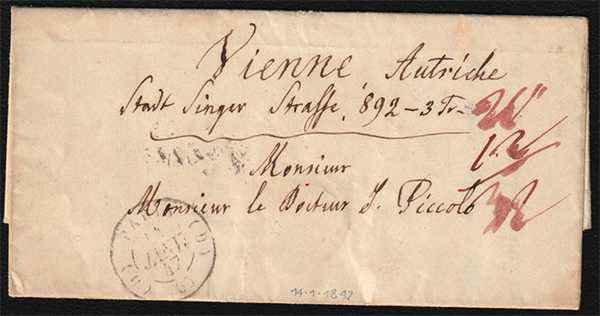 Vienne, Autriche
Stadt Singer Strasse, 892-3 Tr.
12
Monsieur
Monsieur le Docteur J. Piccolo
JANV
47
14.1.1847